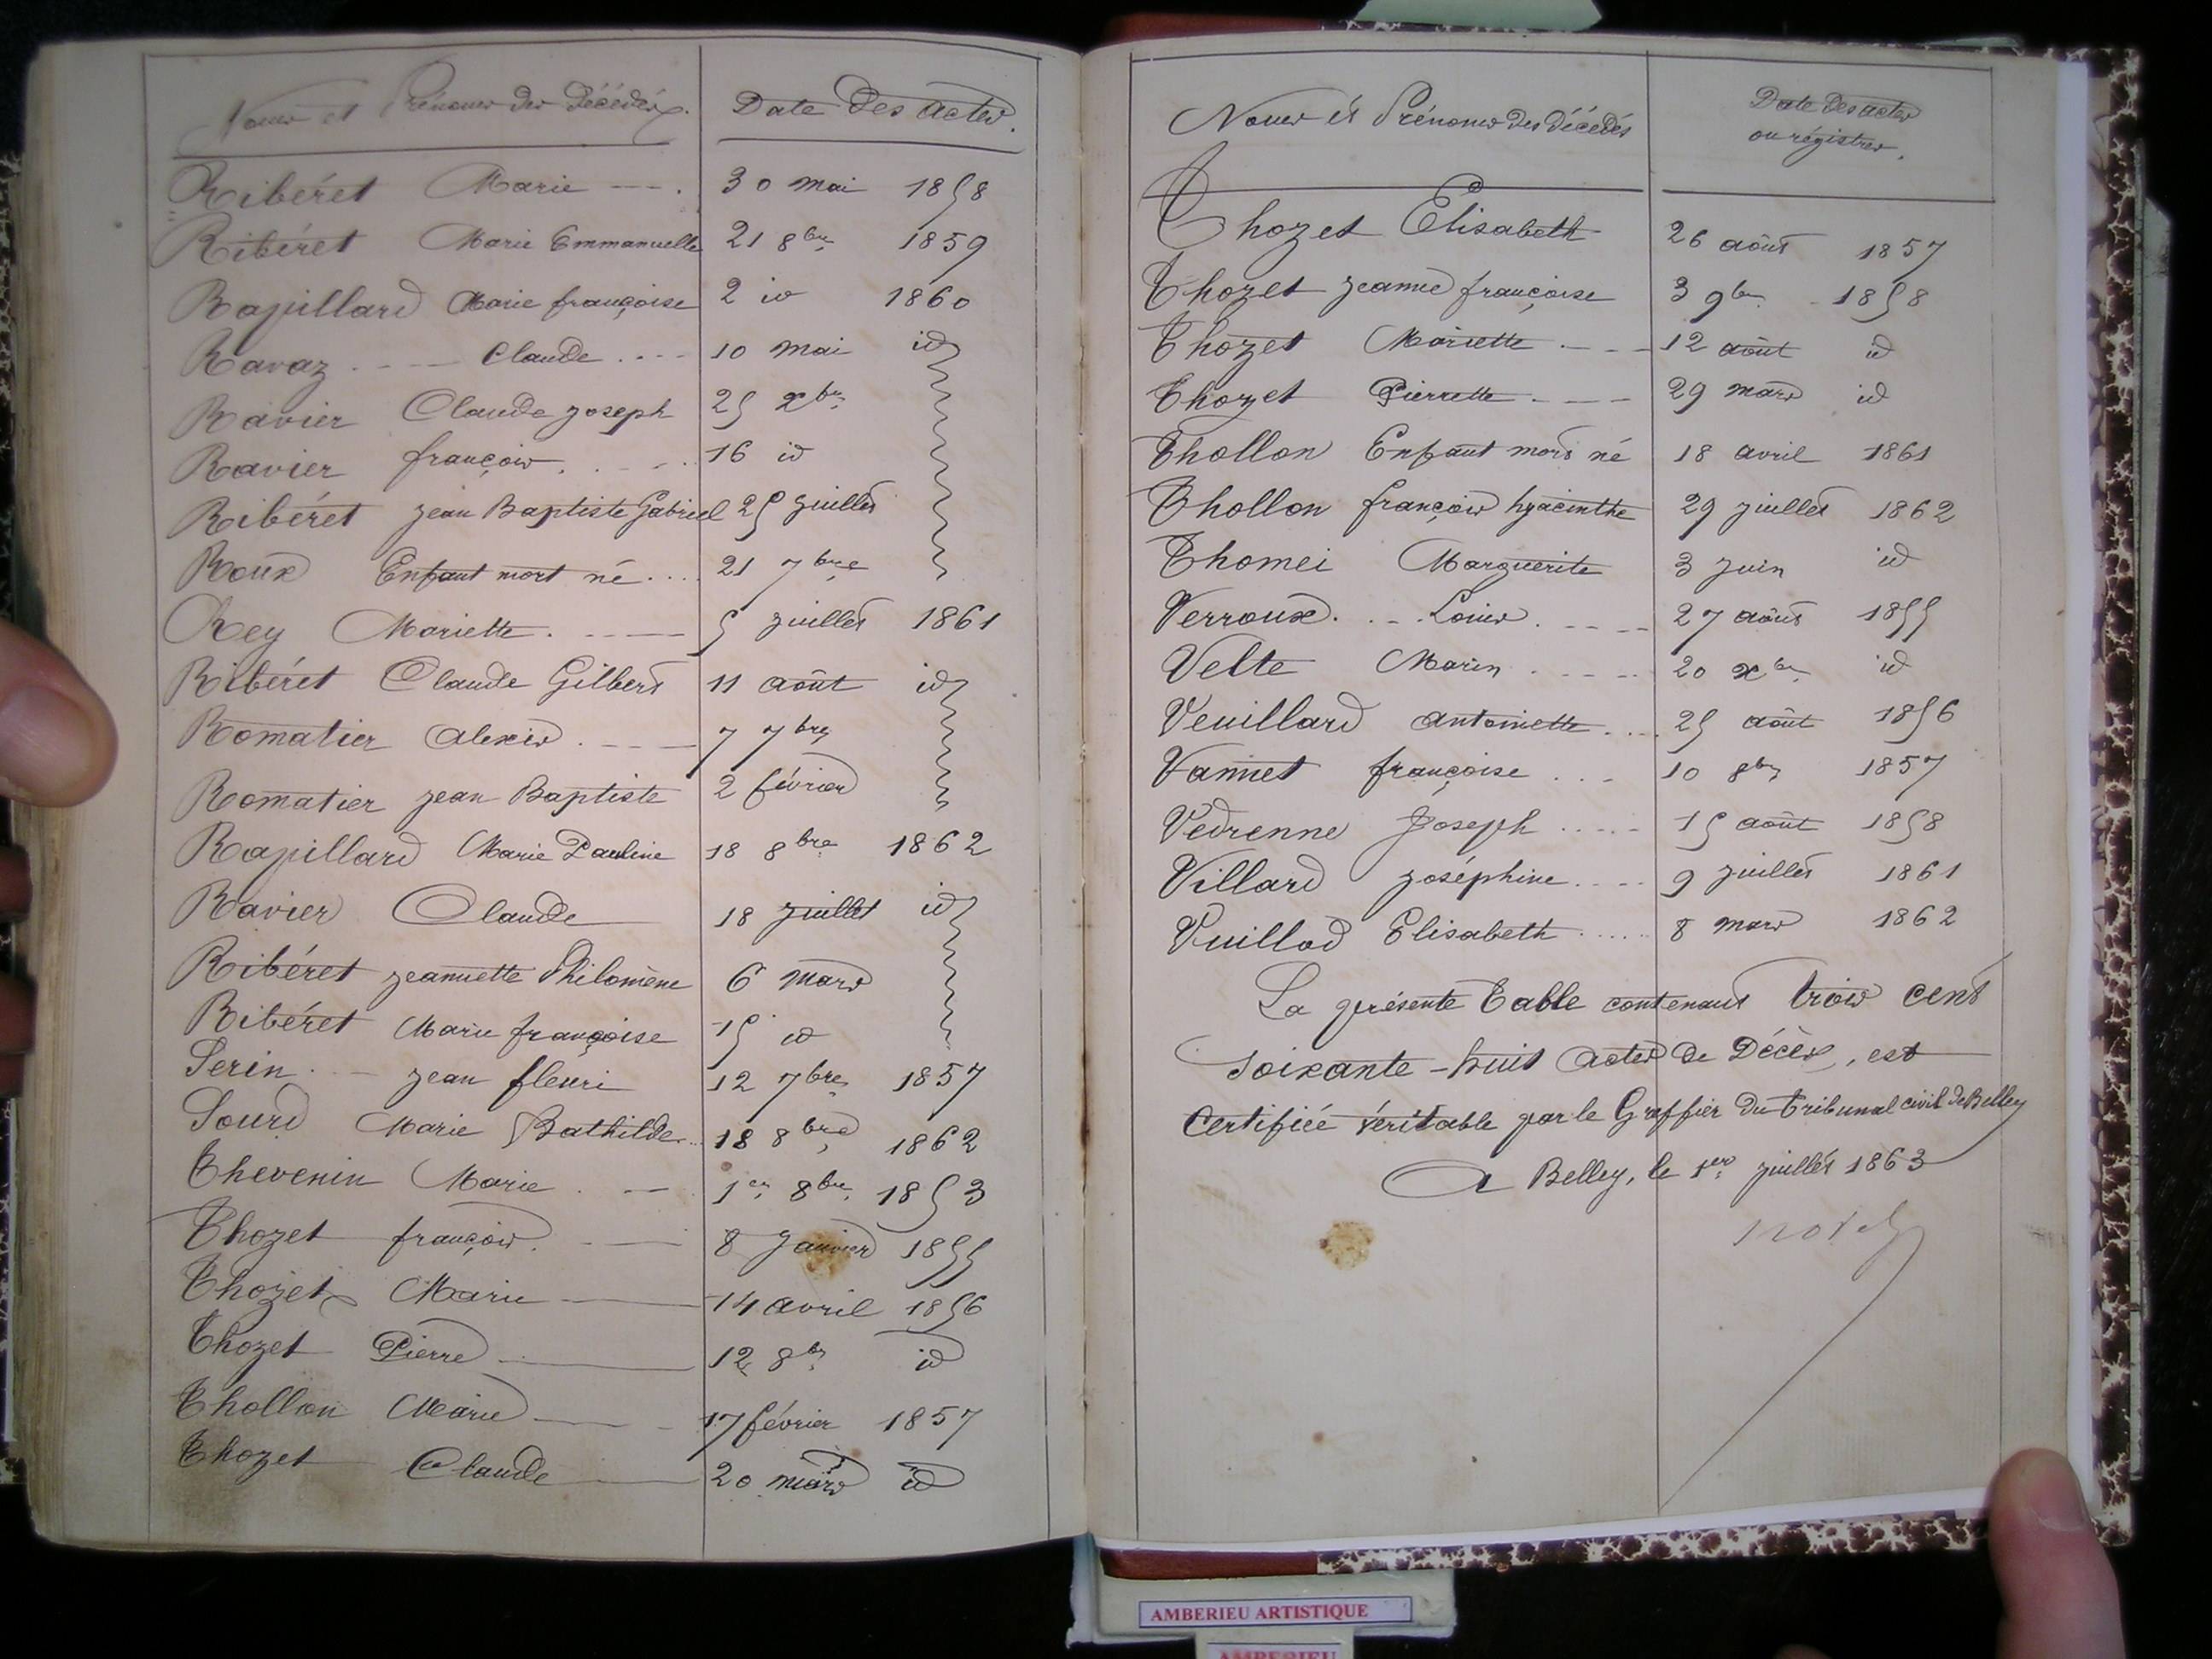 Noms et Prénoms des Décédés. Date des actes.
Ribéret Marie 30 mai 1858
Ribéret Marie Emmanuelle 21 8bre 1859
Rapillard Marie françoise 2 id 1860
Ravaz Claude 10 mai id
Ravier Claude joseph 25 xbre
Ravier françois 16 id
Ribéret jean Baptiste Gabriel 25 juillet
Roux Enfant mort né 21 7bre
Rey Mariette 5 juillet 1861
Ribéret Claude Gilbert 11 août id
Romatier Alexis 7 7bre
Romatier jean Baptiste 2 février
Rapillard Marie Pauline 18 8bre 1862
Ravier Claude 18 juillet id
Ribéret jeannette Philomène 6 mars
Ribéret Marie françoise 15 id
Serin jean fleuri 12 7bre 1857
Sourd Marie Bathilde 18 8bre 1862
Thevenin Marie 1er 8bre 1853
Thozet françois 8 janvier 1855
Thozet Marie 14 avril 1856
Thozet Pierre 12 8bre id
Thollon Marie 17 février 1857
Thozet Claude 20 mars id
Noms et Prénoms des Décédés Date des actes
ou régistres.
Thozet Elisabeth 26 août 1857
Thozet jeanne françoise 3 9bre 1858
Thozet Mariette 12 août id
Thozet Pierrette 29 mars id
Thollon Enfant mort né 18 avril 1861
Thollon françois hyacinthe 29 juillet 1862
Thomei Marguerite 3 juin id
Verroux Louis 27 août 1855
Velte Marin 20 xbre id
Veuillard antoinette 25 août 1856
Vannet françoise 10 8bre 1857
Vedrenne Joseph 15 août 1858
Villard joséphine 9 juillet 1861
Vuillod Elisabeth 8 mars 1862
La présente Table contenant trois cent
soixante-huit actes de Décès, est
Certifiée véritable par le Greffier du Tribunal civil de Belley
A Belley, le 1er juillet 1863
AMBERIEU ARTISTIQUE
AMBERIEU